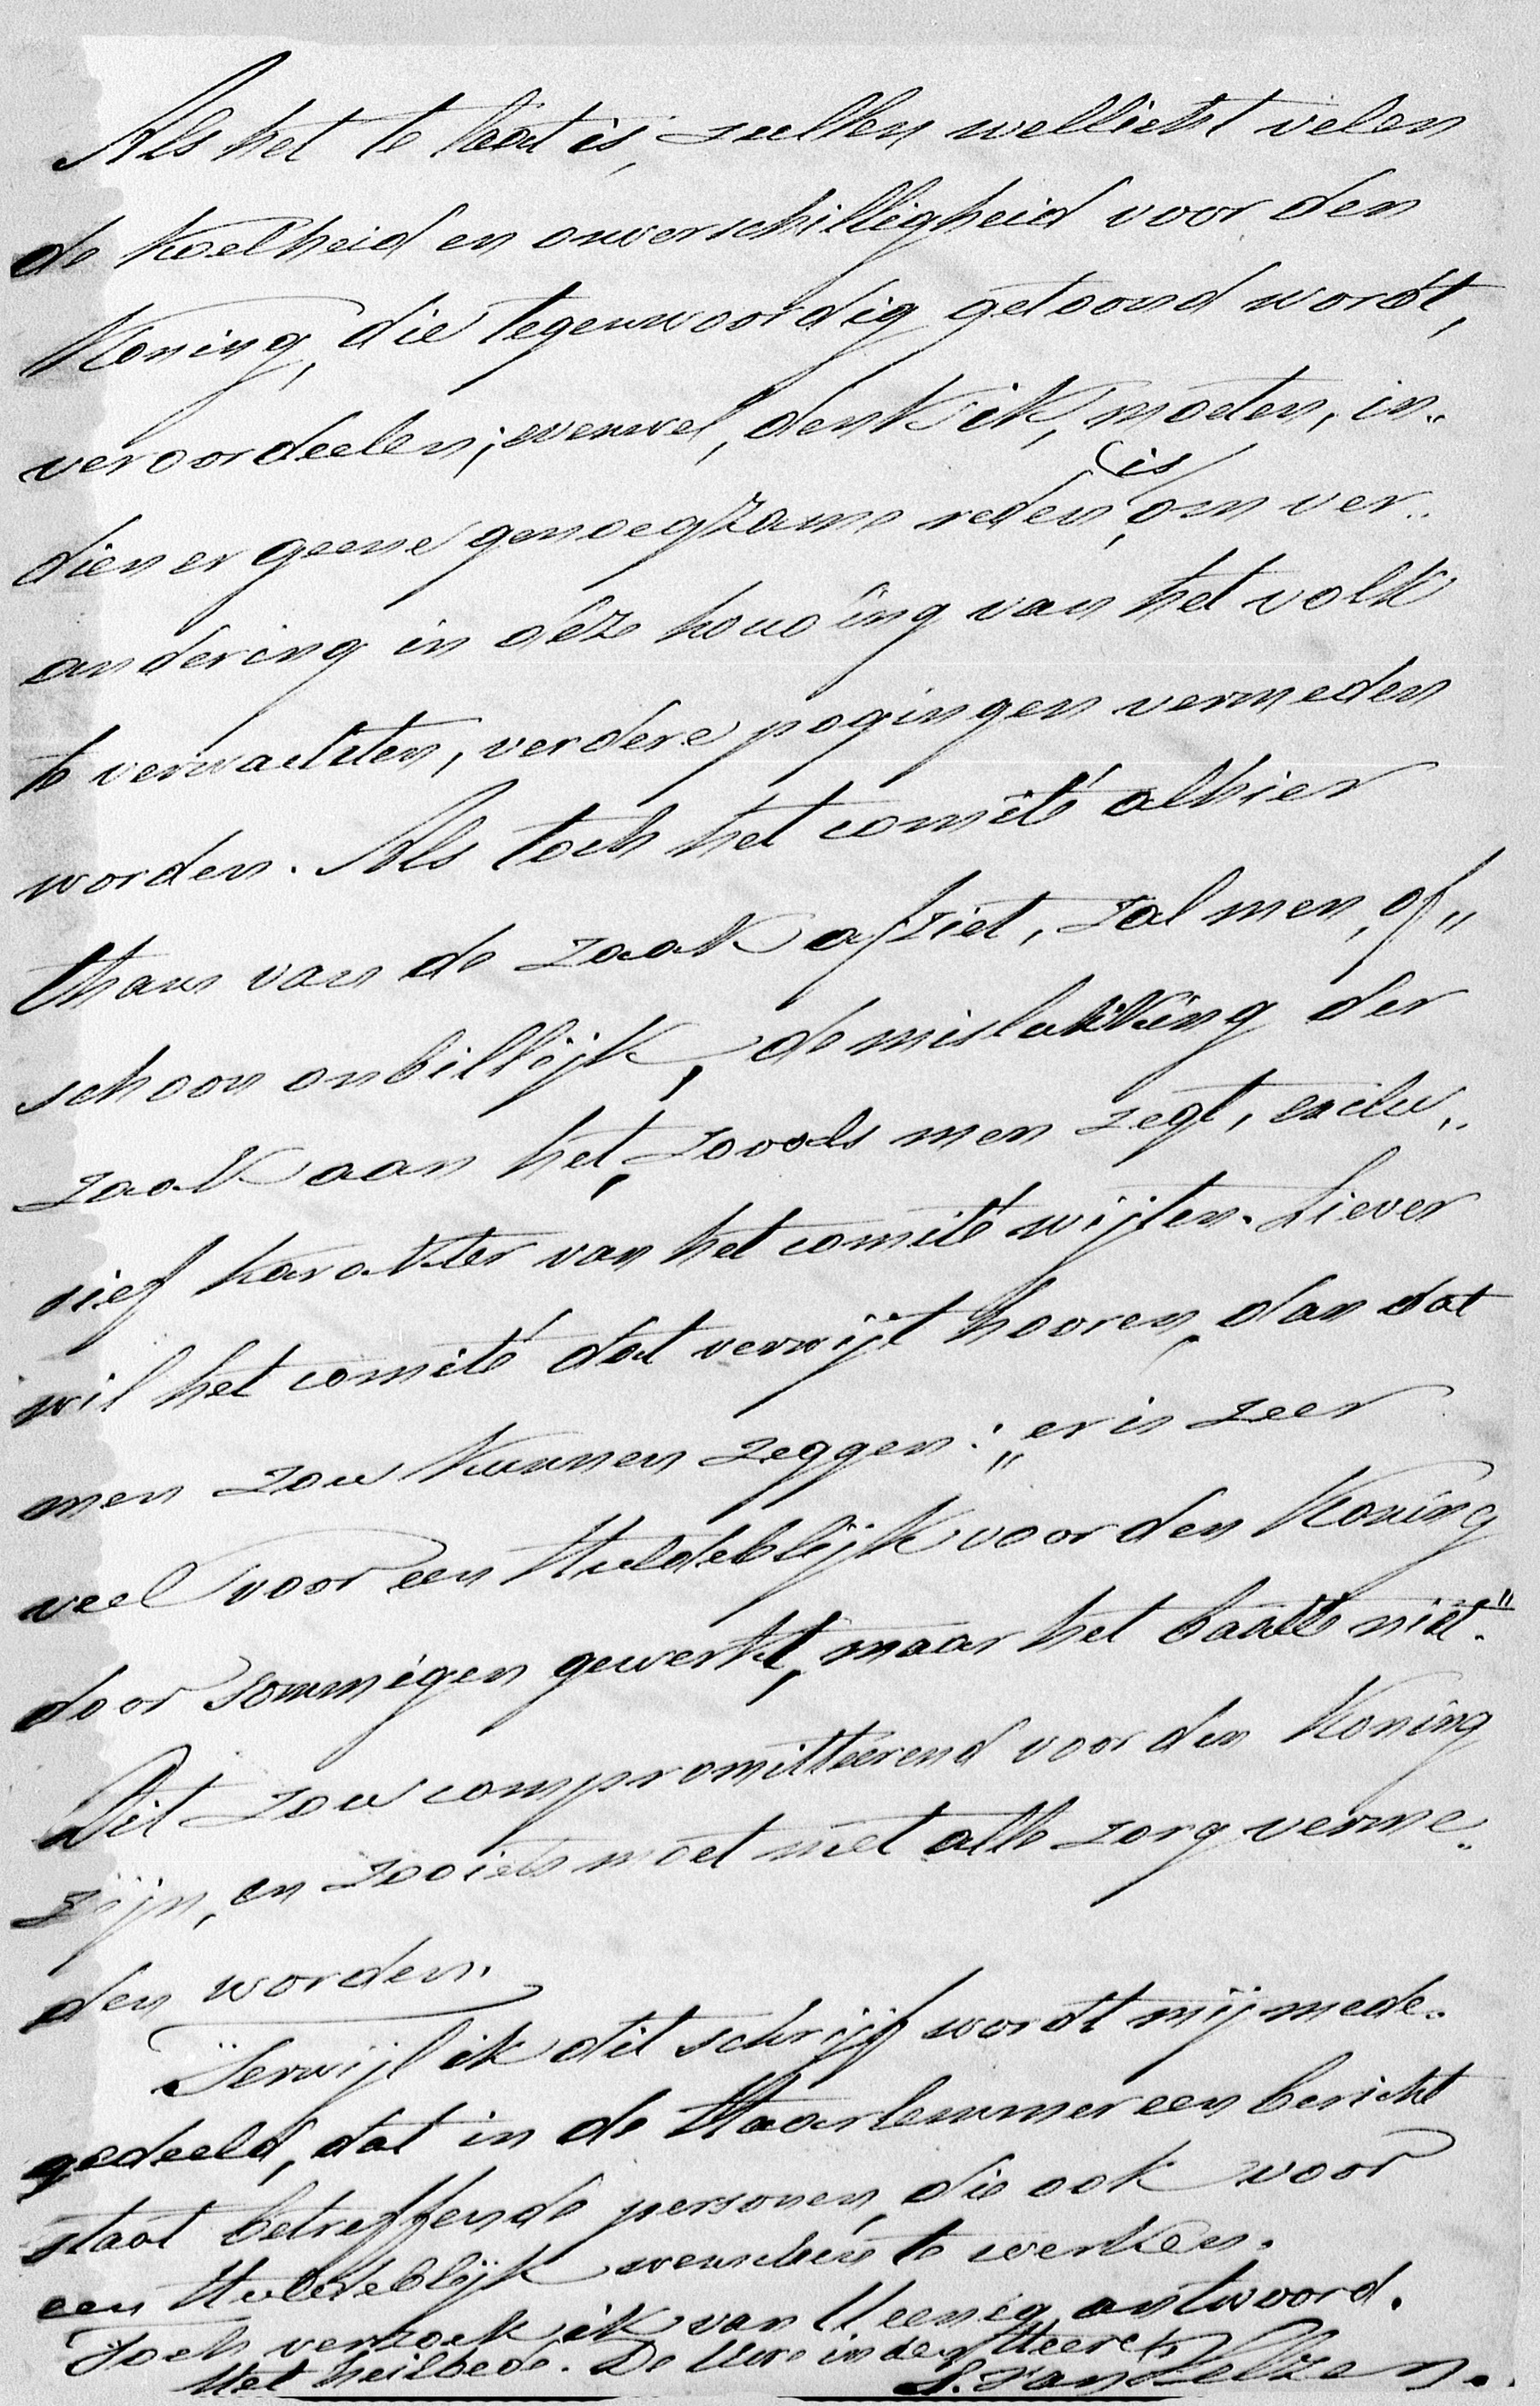 Als het te laat is, zullen wellicht velen
de koelheid en onverschilligheid voor den
Koning, die tegenwoordig getoond wordt,
veroordeelen; evenwel, denk ik, moeten, in„
dien er geene genoegzame reden is om ver„
andering in déze houding van het volk
te verwachten, verdere pogingen vermeden
worden. Als toch het comité alhier
thans van de zaak afziet, zal men, of„
schoon onbillijk, de mislukking der
zaak aan het, zooals men zegt, exclu„
sief karakter van het comité wijten. Liever
wil het comité dat verwijt hooren, dan dat
men zou kunnen zeggen: „er is zeer
veel voor een Huldeblijk voor den Koning
door sommigen gewerkt, maar het baatte niet."
Dit zou compromitteerend voor den Koning
zijn, en zooiets moet met alle zorg verme„
den worden.
Terwijl ik dit schrijf wordt mij mede„
gedeeld, dat in de Haarlemmer een bericht
staat betreffende personen, die ook voor
een Huldeblijk wenschen te werken.
Toch verzoek ik van U eenig antwoord.
Met heilbede. De Uwe in den Heere
S. van Velzen.